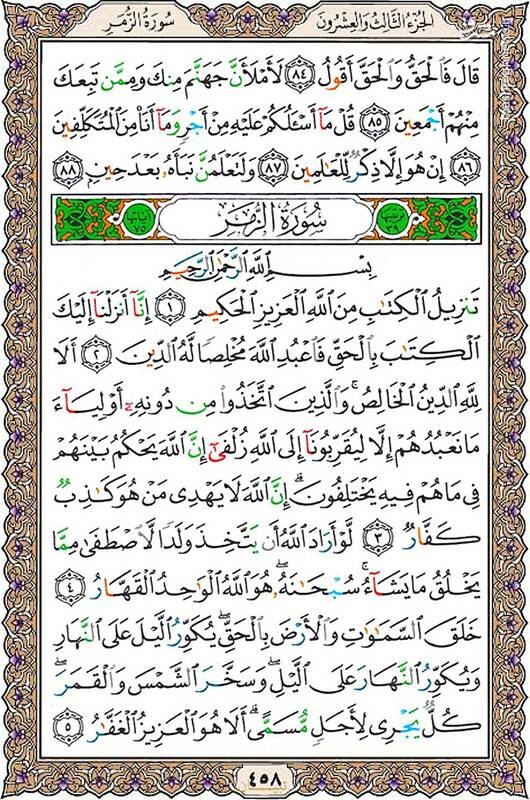 الجزء الثالث والعشرون
سورة الزمر
قَالَ فَٱلْحَقُّ وَٱلْحَقَّ أَقُولُ ٨٤ لَأَمْلَأَنَّ جَهَنَّمَ مِنكَ وَمِمَّن تَبِعَكَ
مِنْهُمْ أَجْمَعِينَ ٨٥ قُلْ مَآ أَسْـَٔلُكُمْ عَلَيْهِ مِنْ أَجْرٍ وَمَآ أَنَا۠ مِنَ ٱلْمُتَكَلِّفِينَ
٨٦ إِنْ هُوَ إِلَّا ذِكْرٌ لِّلْعَـٰلَمِينَ ٨٧ وَلَتَعْلَمُنَّ نَبَأَهُۥ بَعْدَ حِينٍۭ ٨٨
ترتيبها ٣٩ سورة الزمر آياتها ٧٥
بِسْمِ ٱللَّهِ ٱلرَّحْمَـٰنِ ٱلرَّحِيمِ
تَنزِيلُ ٱلْكِتَـٰبِ مِنَ ٱللَّهِ ٱلْعَزِيزِ ٱلْحَكِيمِ ١ إِنَّآ أَنزَلْنَآ إِلَيْكَ
ٱلْكِتَـٰبَ بِٱلْحَقِّ فَٱعْبُدِ ٱللَّهَ مُخْلِصًا لَّهُ ٱلدِّينَ ٢ أَلَا
لِلَّهِ ٱلدِّينُ ٱلْخَالِصُ ۚ وَٱلَّذِينَ ٱتَّخَذُوا۟ مِن دُونِهِۦٓ أَوْلِيَآءَ
مَا نَعْبُدُهُمْ إِلَّا لِيُقَرِّبُونَآ إِلَى ٱللَّهِ زُلْفَىٰٓ إِنَّ ٱللَّهَ يَحْكُمُ بَيْنَهُمْ
فِى مَا هُمْ فِيهِ يَخْتَلِفُونَ ۗ إِنَّ ٱللَّهَ لَا يَهْدِى مَنْ هُوَ كَـٰذِبٌ
كَفَّارٌ ٣ لَّوْ أَرَادَ ٱللَّهُ أَن يَتَّخِذَ وَلَدًا لَّٱصْطَفَىٰ مِمَّا
يَخْلُقُ مَا يَشَآءُ ۚ سُبْحَـٰنَهُۥ ۖ هُوَ ٱللَّهُ ٱلْوَٰحِدُ ٱلْقَهَّارُ ٤
خَلَقَ ٱلسَّمَـٰوَٰتِ وَٱلْأَرْضَ بِٱلْحَقِّ ۖ يُكَوِّرُ ٱلَّيْلَ عَلَى ٱلنَّهَارِ
وَيُكَوِّرُ ٱلنَّهَارَ عَلَى ٱلَّيْلِ ۖ وَسَخَّرَ ٱلشَّمْسَ وَٱلْقَمَرَ ۖ
كُلٌّ يَجْرِى لِأَجَلٍ مُّسَمًّى ۗ أَلَا هُوَ ٱلْعَزِيزُ ٱلْغَفَّـٰرُ ٥
٤٥٨